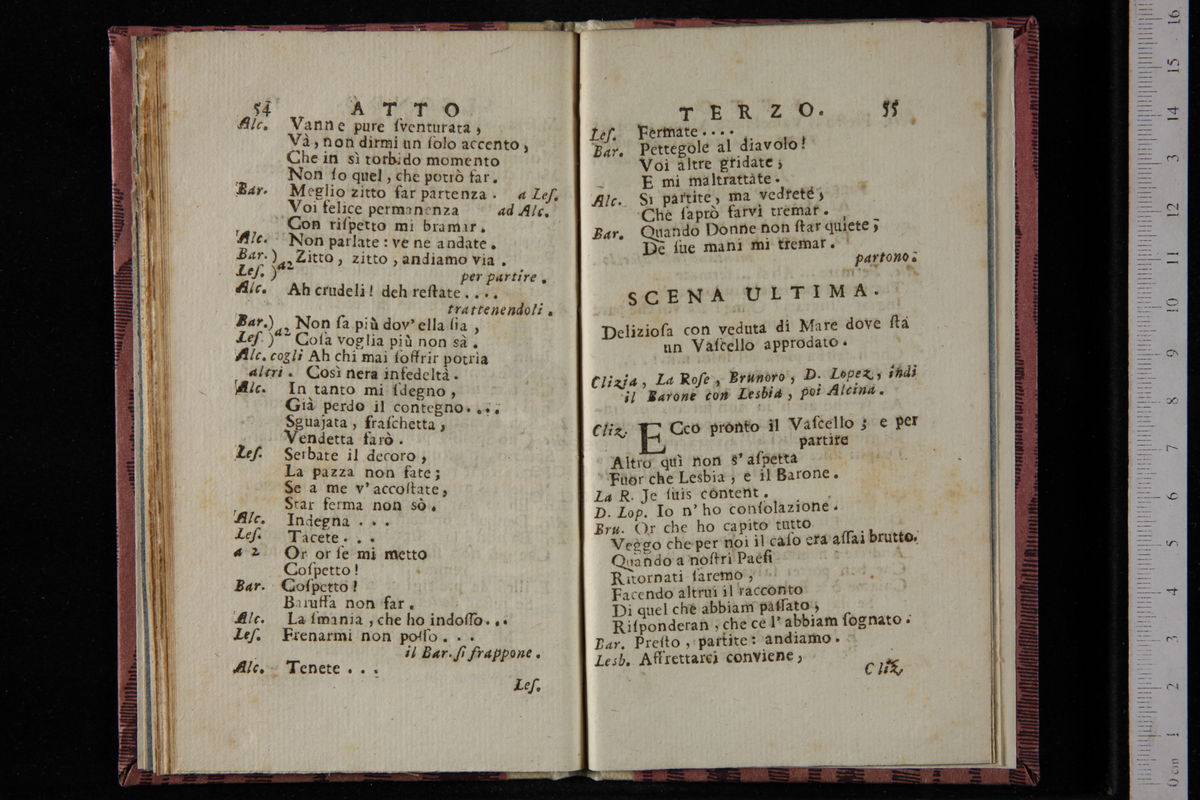 54 ATTO
Alc. Vanne pure ſventurata,
Và, non dirmi un ſolo accento,
Che in sì torbido momento
Non ſo quel, che potrò far.
Bar. Meglio zitto far partenza. a Leſ.
Voi felice permanenza ad Alc.
Con riſpetto mi bramar.
Alc. Non parlate: ve ne andate.
Bar. ) a2 Zitto, zitto, andiamo via.
Leſ. ) per partire.
Alc. Ah crudeli! deh reſtate....
trattenendoli.
Bar.) a2 Non ſa più dov' ella ſia,
Leſ.) Coſa voglia più non sà.
Alc. cogli Ah chi mai ſoffrir potria
altri. Così nera infedeltà.
Alc. In tanto mi ſdegno,
Già perdo il contegno....
Sguajata, fraſchetta,
Vendetta farò.
Leſ. Serbate il decoro,
La pazza non fate;
Se a me v' accoſtate,
Star ferma non sò.
Alc. Indegna...
Leſ. Tacete...
a 2 Or or ſe mi metto
Coſpetto!
Bar. Coſpetto!
Baruffa non far.
Alc. La ſmania, che ho indoſſo...
Leſ. Frenarmi non poſſo...
il Bar. ſi frappone.
Alc. Tenete...
Leſ.
TERZO. 55
Leſ. Fermate....
Bar. Pettegole al diavolo!
Voi altre gridate,
E mi maltrattate.
Alc. Sì partite, ma vedrete,
Che ſaprò farvi tremar.
Bar. Quando Donne non ſtar quiete;
De ſue mani mi tremar.
partono.
SCENA ULTIMA.
Delizioſa con veduta di Mare dove ſtà
un Vaſcello approdato.
Clizia, La Roſe, Brunoro, D. Lopez, indi
il Barone con Lesbia, poi Alcina.
Cliz. ECco pronto il Vaſcello; e per
partire
Altro quì non s' aſpetta
Fuor che Lesbia, e il Barone.
La R. Je ſuis content.
D. Lop. Io n' ho conſolazione.
Bru. Or che ho capito tutto
Veggo che per noi il caſo era aſſai brutto.
Quando a noſtri Paeſi
Ritornati ſaremo,
Facendo altrui il racconto
Di quel che abbiam paſſato,
Riſponderan, che ce l' abbiam ſognato.
Bar. Preſto, partite: andiamo.
Lesb. Affrettarci conviene,
Cliz.
0 cm 1 2 3 4 5 6 7 8 9 10 11 12 3 14 15 16